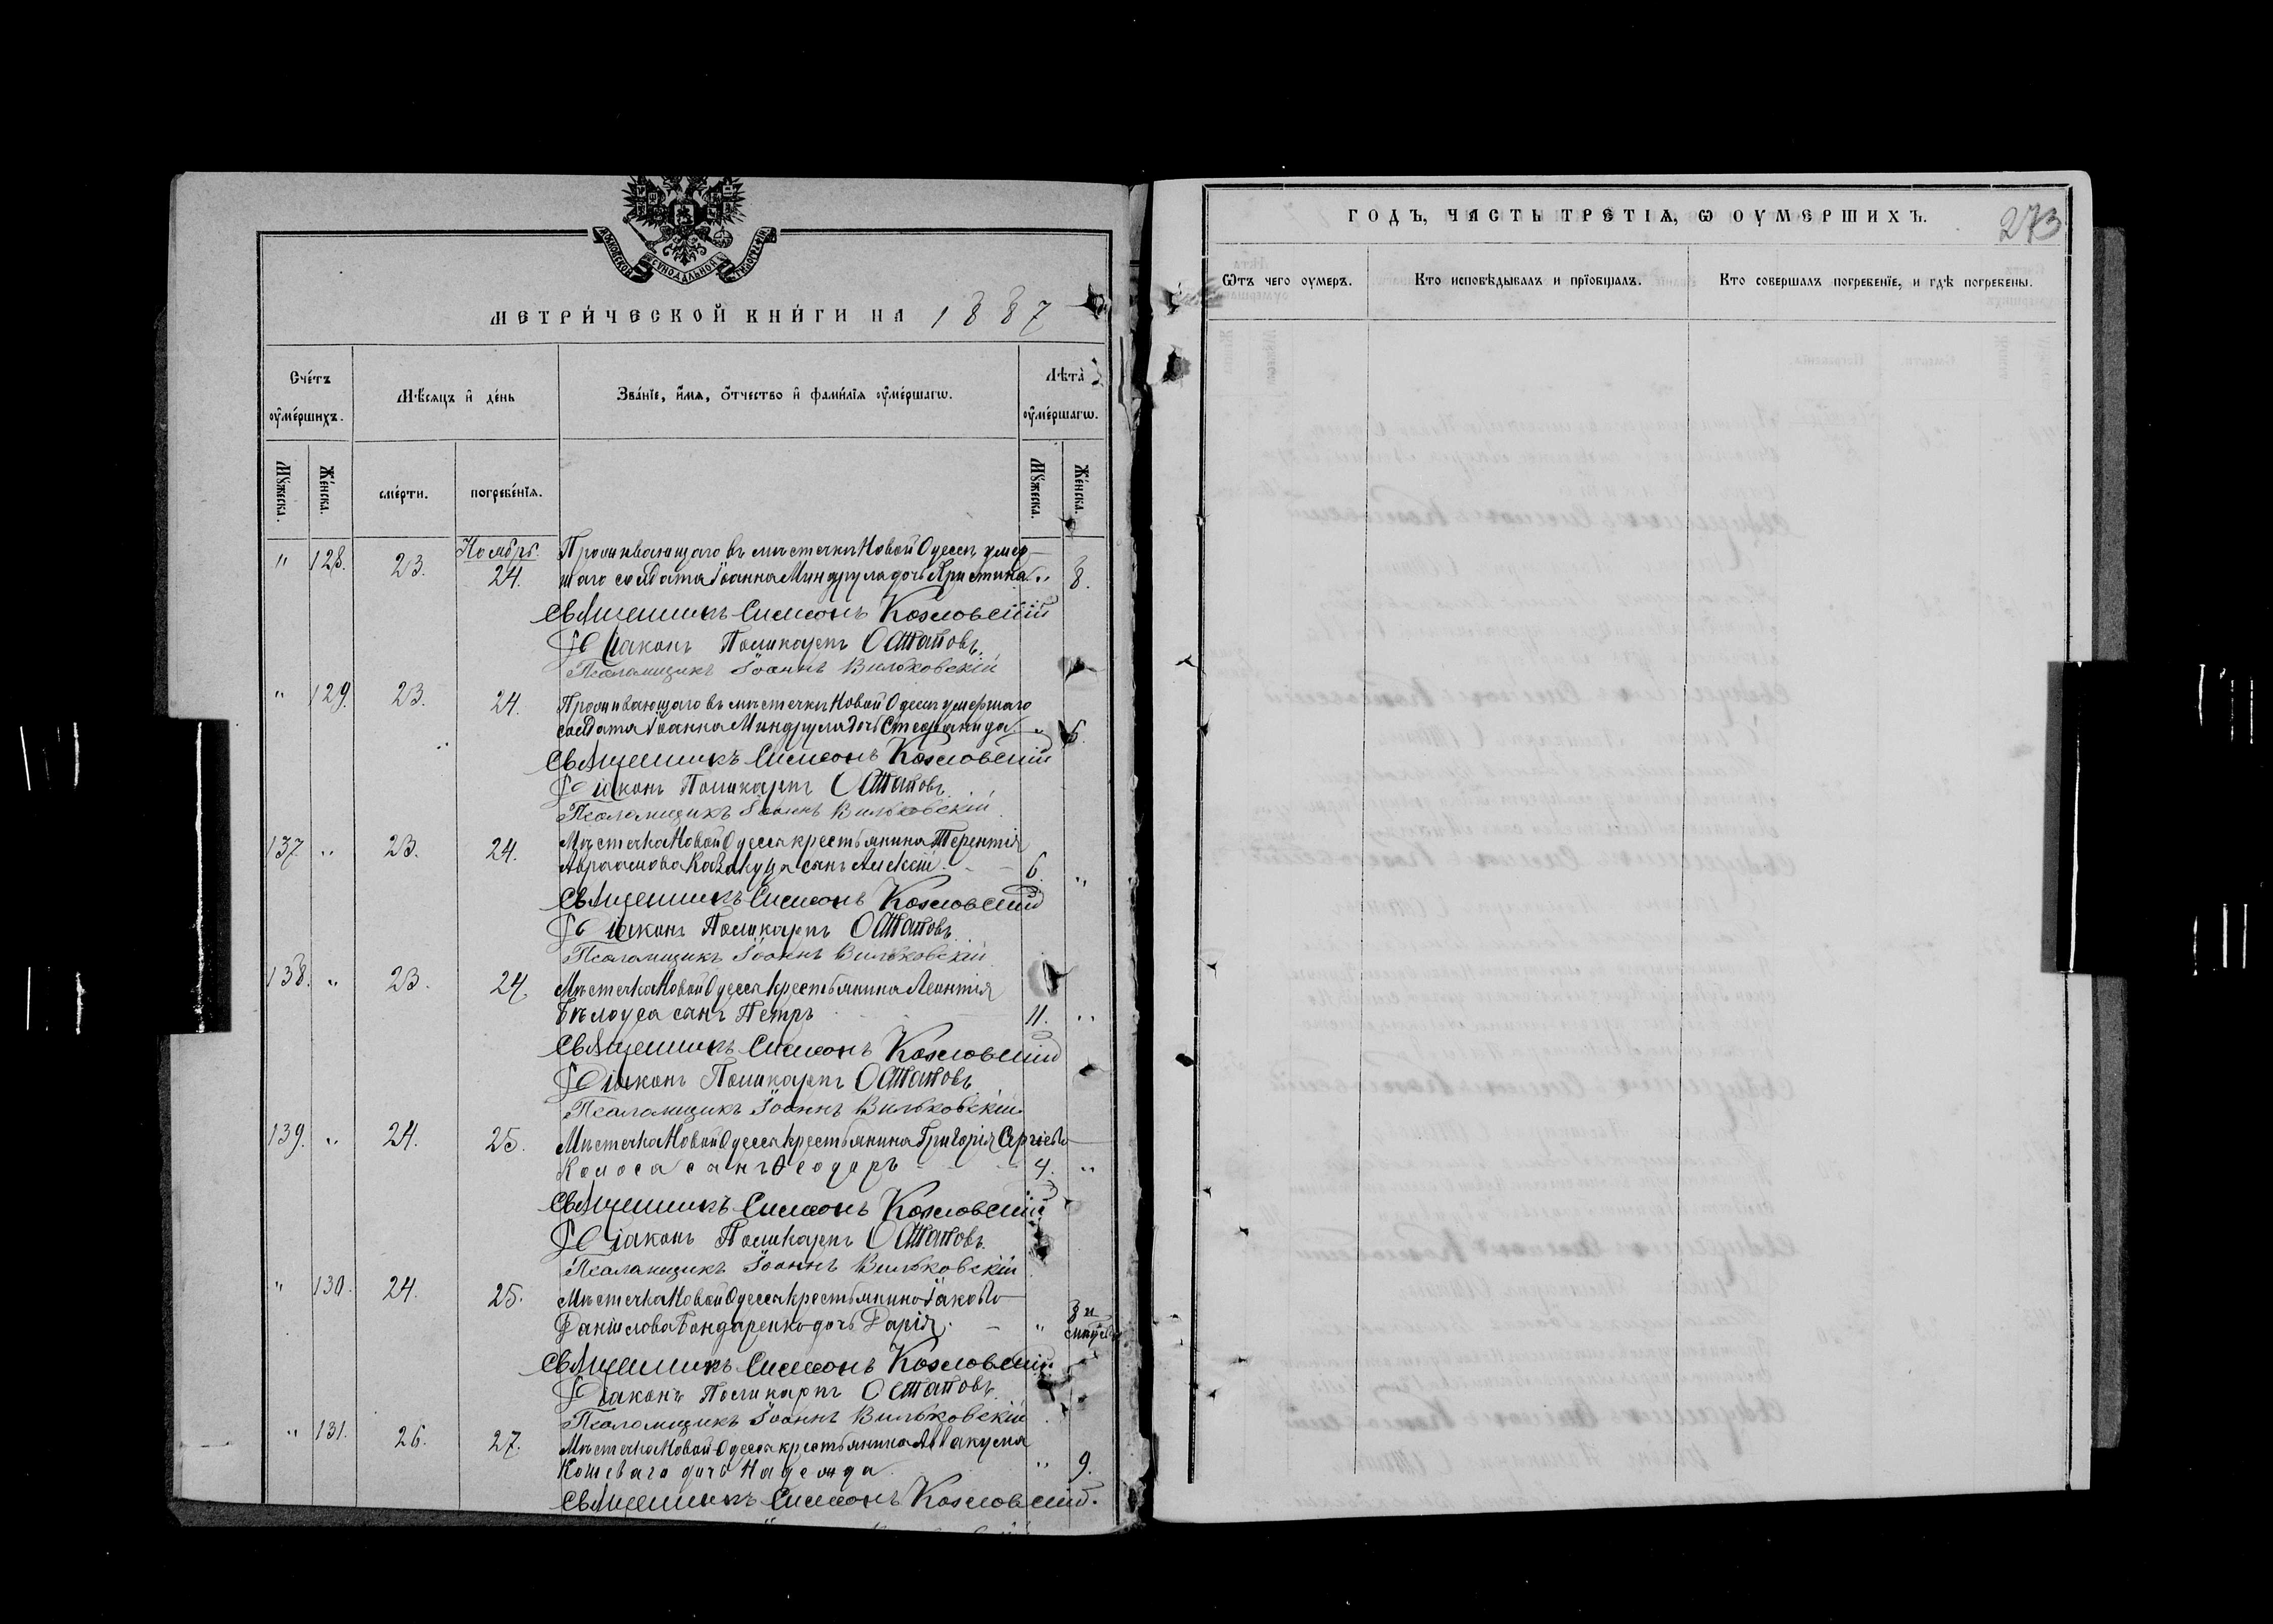 МОСКОВСКОЙ СѴНОДАЛЬНОЙ ТИПОГРАФІИ
МЕТРИ́ЧЕСКОЙ КНИ́ГИ НА 1887
Сче́тъ ᲂумéршихъ.
Мѣ́сяцъ и де́нь
Зва́нїе, и́мѧ, о́тчество и фами́лїѧ ᲂумéршагѡ.
Лѣта̀ ᲂумéршагѡ.
Мꙋ́жеска.
Же́нска.
сме́рти.
погребе́нїѧ.
Мꙋ́жеска.
Же́нска.
Ноябрь.
" 128. 23. 24. Проживающаго въ мѣстечкѣ Новой Одессѣ умер-
шаго солдата Іоанна Миндрула дочь Христина " 8.
Священникъ Симеонъ Козловскій
Діаконъ Поликарпъ Остаповъ.
Псаломщикъ Іоаннъ Вильковскій
" 129. 23. 24. Проживающаго въ мѣстечкѣ Новой Одессѣ умершаго
солдата Іоанна Миндрула дочь Стефанида " 6.
Священникъ Симеонъ Козловскій
Діаконъ Поликарпъ Остаповъ.
Псаломщикъ Іоаннъ Вильковскій.
137. " 23. 24. Мѣстечка Новой Одессы крестьянина Терентія
Авраамова сынъ Алексій 6. "
Священникъ Симеонъ Козловскій
Діаконъ Поликарпъ Остаповъ.
Псаломщикъ Іоаннъ Вильковскій
138. " 23. 24. Мѣстечка Новой Одессы крестьянина Леонтія
Бѣлоуса сынъ Петръ 11. "
Священникъ Симеонъ Козловскій
Діаконъ Поликарпъ Остаповъ.
Псаломщикъ Іоаннъ Вильковскій
139. " 24. 25. Мѣстечка Новой Одессы крестьянина Григорія Сергіева
Колоса сынъ Ѳеодоръ 4. "
Священникъ Симеонъ Козловскій
Діаконъ Поликарпъ Остаповъ.
Псаломщикъ Іоаннъ Вильковскій
" 130. 24. 25. Мѣстечка Новой Одессы крестьянина Іакова
Даніилова Бондаренко дочь Дарія. "
Священникъ Симеонъ Козловскій
Діаконъ Поликарпъ Остаповъ.
Псаломщикъ Іоаннъ Вильковскій
" 131. 26. 27. Мѣстечка Новой Одессы крестьянина Аввакума
Кошеваго дочь Надежда " 9.
Священникъ Симеонъ Козловскій.
ГОДЪ, ЧАСТЬ ТРЕТІѦ, Ѡ ОУМЕРШИХЪ.
273
Ѿтъ чего оумеръ.
Кто исповѣдывалъ и прїобщалъ.
Кто совершалъ погребенїе, и гдѣ погребены.